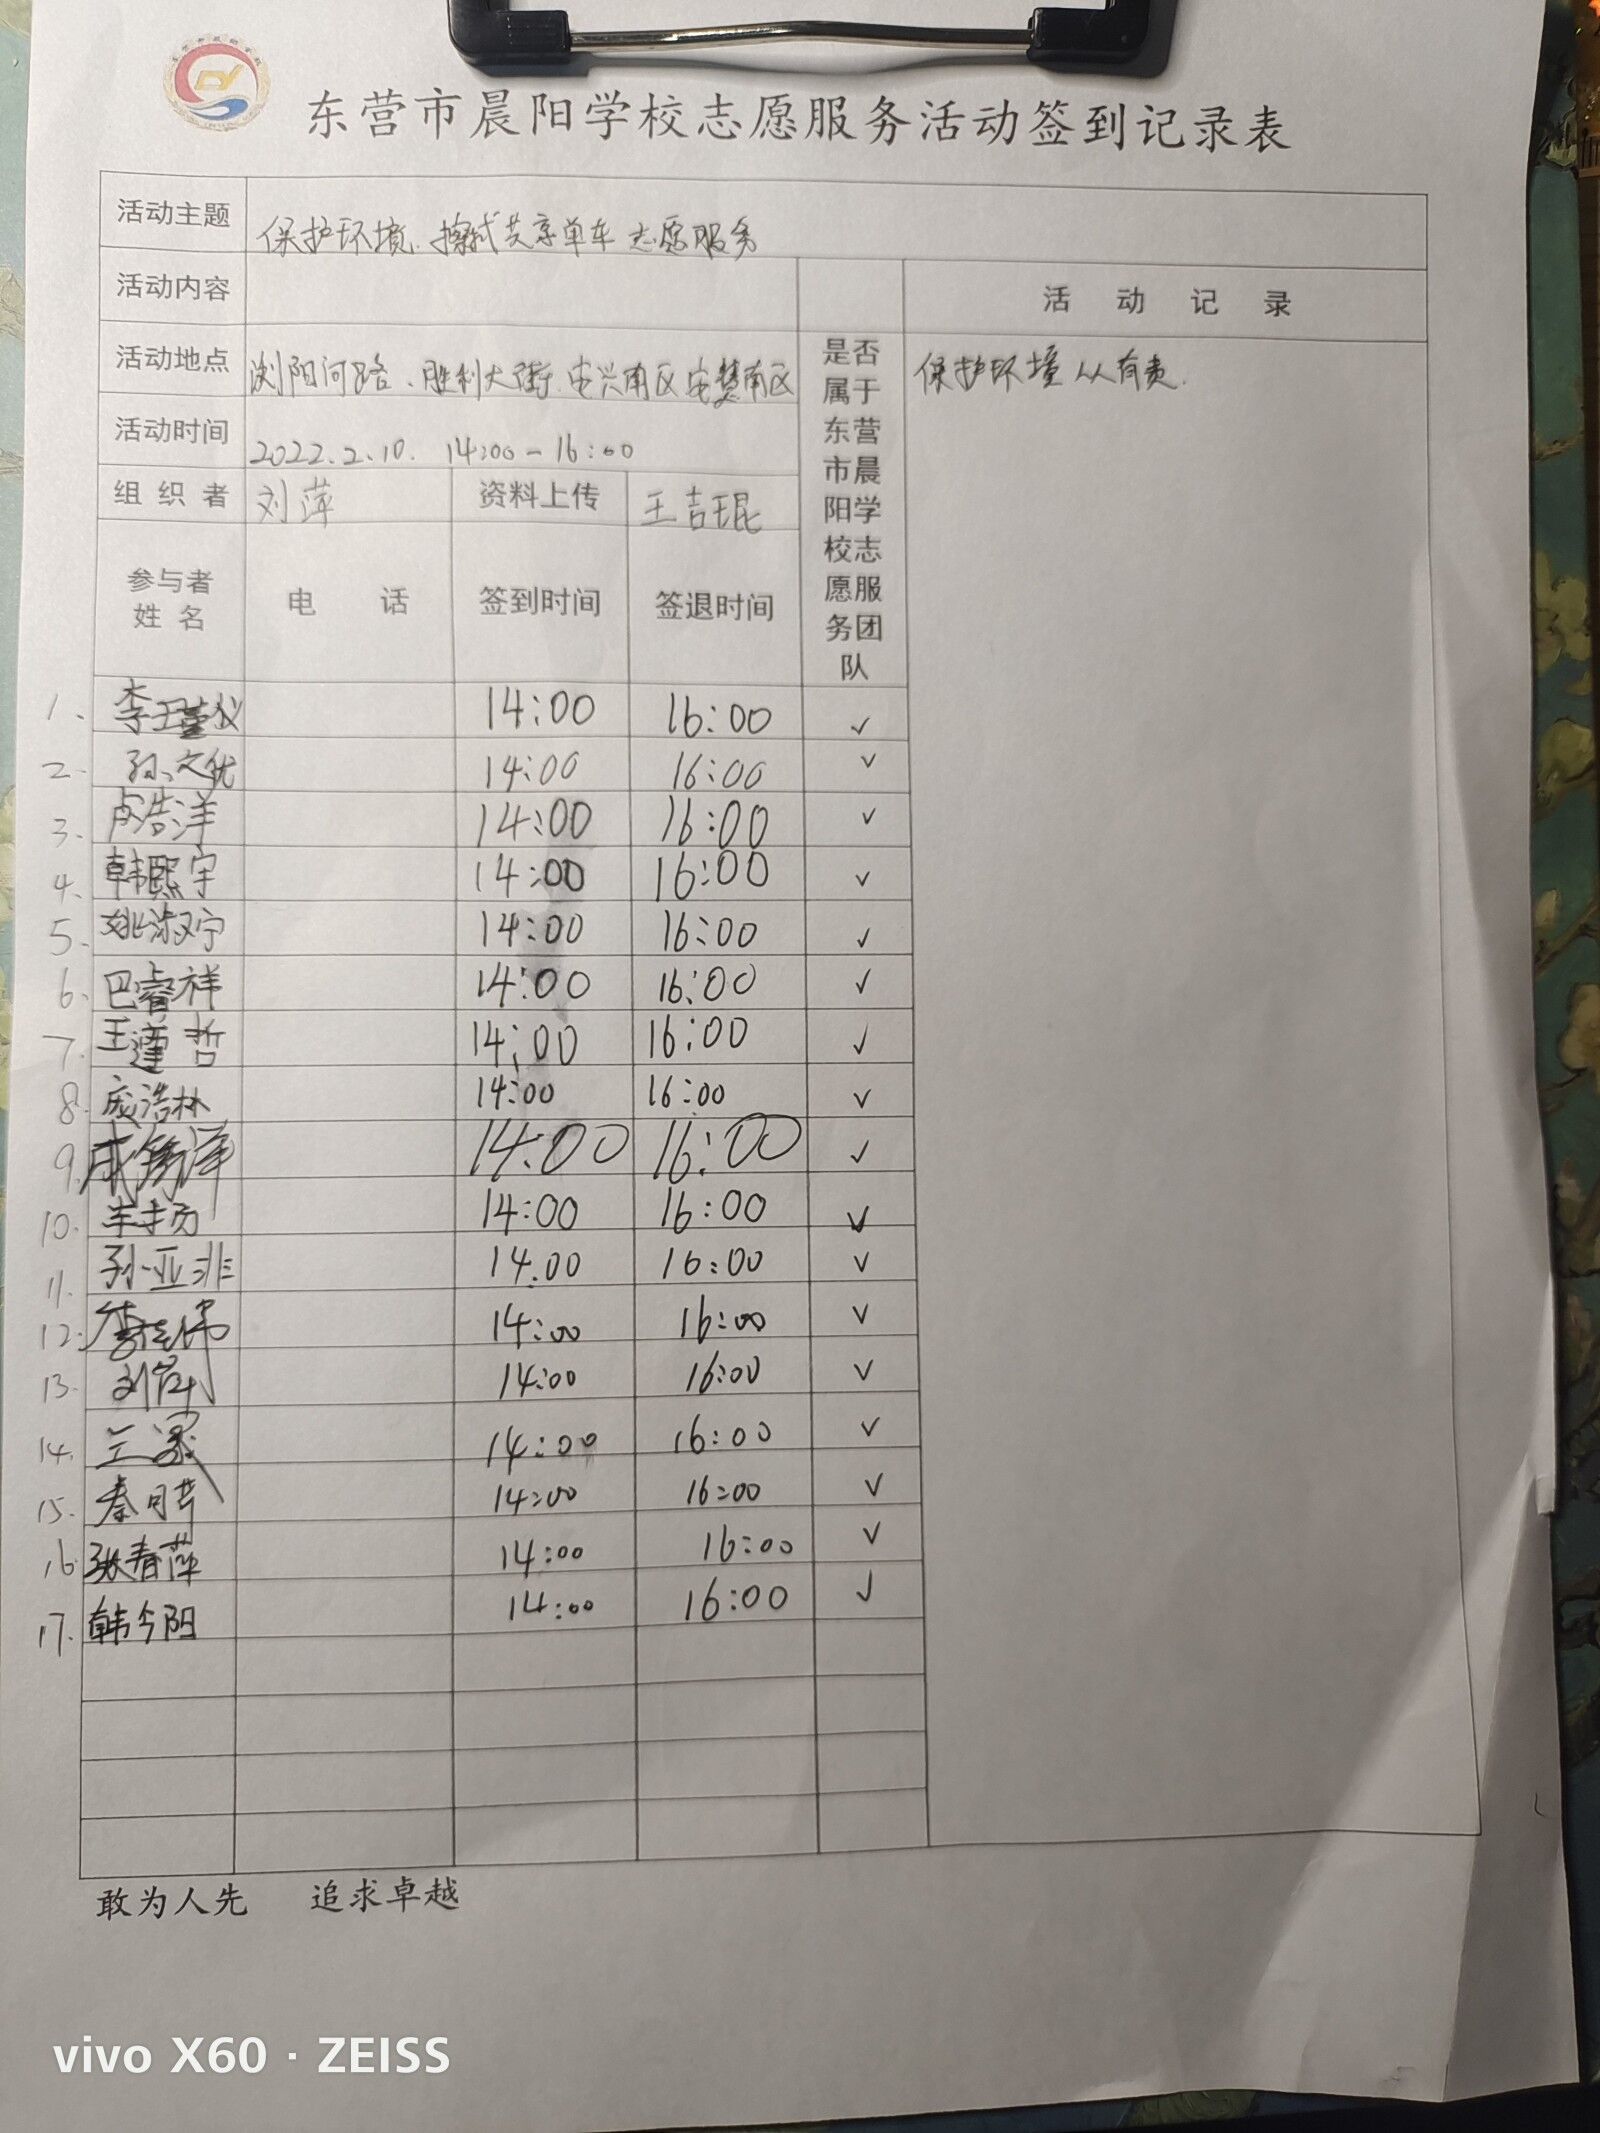 东营市晨阳学校志愿服务活动签到记录表
活动主题 保护环境、擦拭共享单车 志愿服务
活动内容 活 动 记 录
活动地点 浏阳河路、胜利大街、安兴南区 安慧南区
保护环境 人人有责.
活动时间 2022.2.10. 14:00-16:00
组织者 刘萍 资料上传 王吉琨
参与者姓名 电 话 签到时间 签退时间 是否属于东营市晨阳学校志愿服务团队
1. 14:00 16:00 ✓
2. 孙文优 14:00 16:00 ✓
3. 卢浩洋 14:00 16:00 ✓
4. 韩熙宇 14:00 16:00 ✓
5. 姚淑宁 14:00 16:00 ✓
6. 巴睿祥 14:00 16:00 ✓
7. 王瑾哲 14:00 16:00 ✓
8. 庞浩林 14:00 16:00 ✓
9. 14:00 16:00 ✓
10. 14:00 16:00 ✓
11. 孙亚非 14.00 16:00 ✓
12. 14:00 16:00 ✓
13. 14:00 16:00 ✓
14. 14:00 16:00 ✓
15. 14:00 16:00 ✓
16 张春萍 14:00 16:00 ✓
17. 韩今阳 14:00 16:00 ✓
敢为人先 追求卓越
vivo X60 · ZEISS